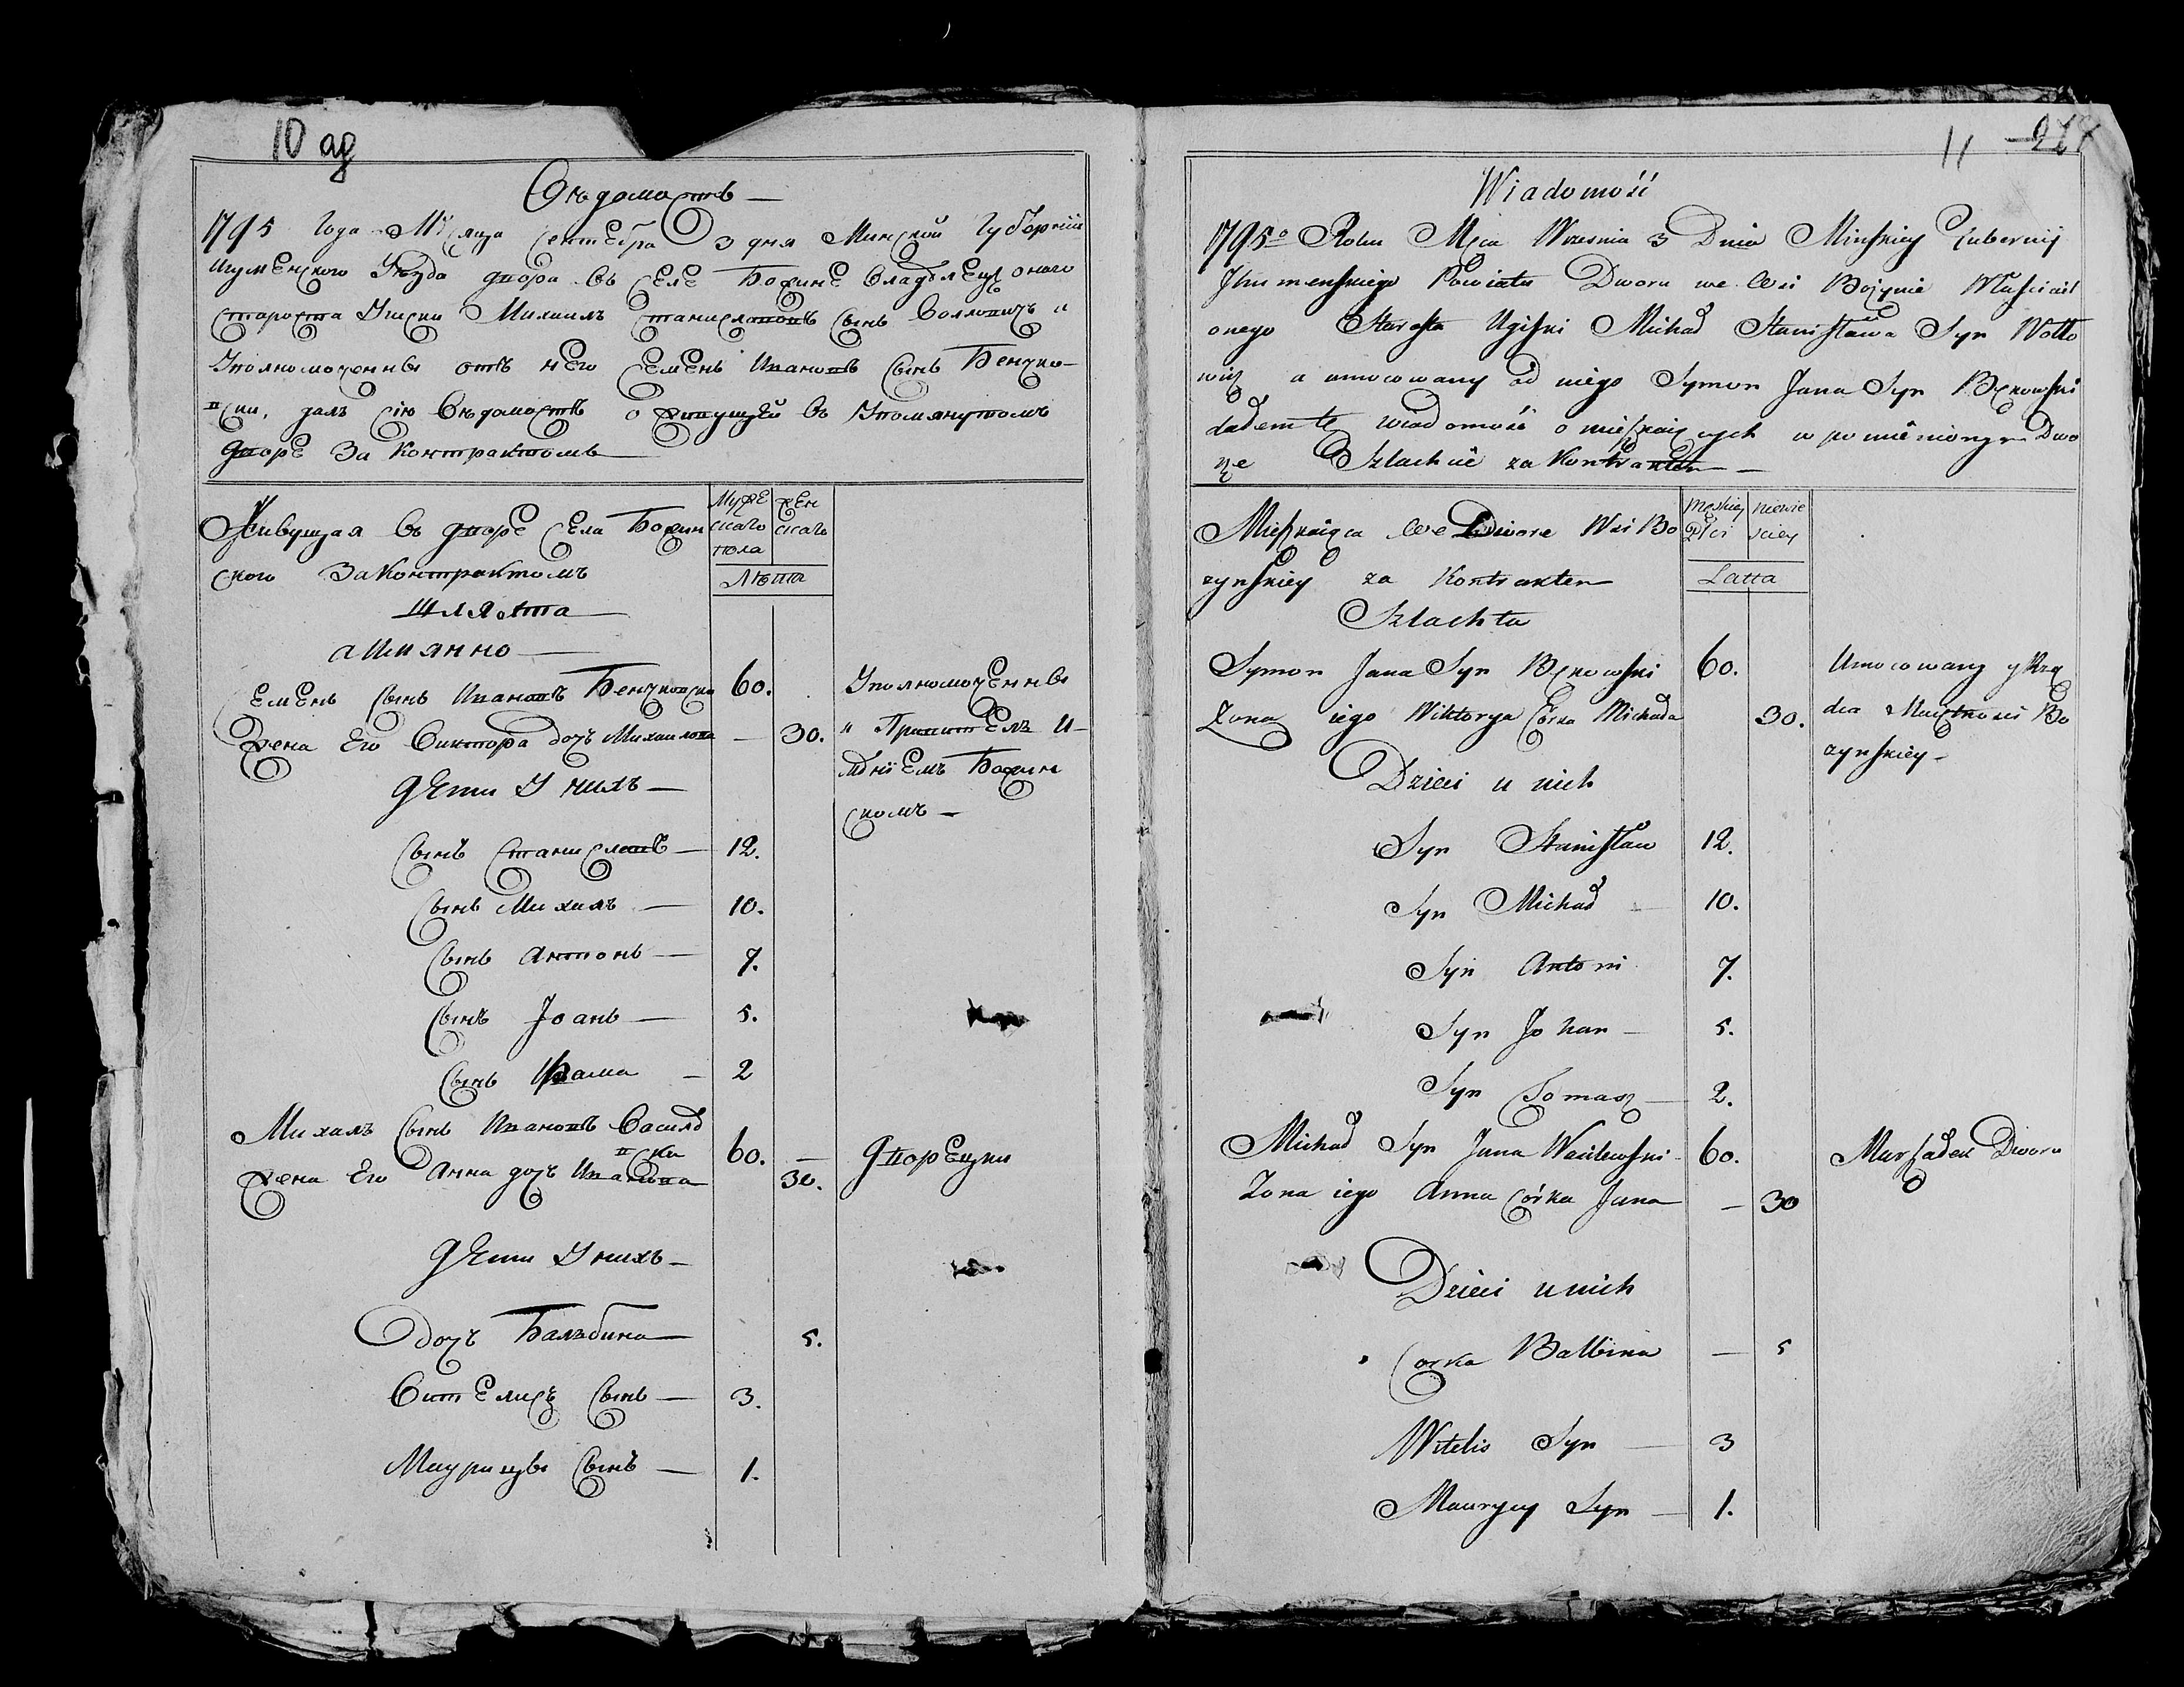 10 ад
Вѣдомость
1795 Года Мѣсяца Сентебра 3 дня Минской Губернии
Игуменского Уезда двора въ Селе Божине Владѣлец оного
Староста Михаилъ Станиславовъ Сынъ Воллович и
Уполномоченны отъ него Семенъ Ивановъ Сынъ Бенчко-
вски, далъ сію Вѣдомость о живущей въ Упомянутомъ
дворе За Контрактомъ
Живущая въ дворе Села Божин
ского За Контрактомъ
Шляхта
а имянно
Муже
скаго
пола
жен
скаго
Лѣта
Семенъ Сынъ Ивановъ Бенчковски 60.
Жена Его Виктора дочъ Михаилова — 30.
Уполномоченны
и Правитель И-
мѣніемъ Божин
скомъ —
дети У нихъ —
Сынъ Станиславъ — 12.
Сынъ Михалъ — 10.
Сынъ Антонъ — 7.
Сынъ Іоанъ — 5.
Сынъ Фама — 2
Михалъ Сынъ Ивановъ Василѣ
вски 60. — дворецки
Жена Его Анна дочъ Иванова 30.
дети У нихъ —
дочъ Бальбина 5.
Вителисъ Сынъ — 3.
Маурицы Сынъ — 1.
11 277
Wiadomość
1795º Roku Mca Wresnia 3 Dnia Minskiey Gubernij
Ihumenskiego Powiatu Dworu we Wsi Bożynie Właściciel
onego Starosta Ugiski Michał Stanisława Syn Wołło
wicz a umocowany od niego Symon Jana Syn Bęckowski
dałem tę wiadomość o mieszkaiących w pomienionym Dwo
rze Szlachcie za Kontraktem —
Mieszkaiąca we Dworze Wsi Bo
zynskiey za Kontraktem
Szlachta
Męskiey
Płci
niewie
sciey
Latta
Symon Jana Syn Bęckowski 60.
Zona iego Wiktorya Córka Michała 30.
Umocowany y Rzą
dca Maiętnosci Bo
zynskiey —
Dzieci u nich
Syn Stanisław 12.
Syn Michał — 10.
Syn Antoni 7.
Syn Johan — 5.
Syn Tomasz — 2.
Michał Syn Jana Wasilewski 60. Marszałek Dworu
Zona iego Anna Córka Jana — 30
Dzieci u nich
Corka Balbina — 5
Witelis Syn — 3
Maurycy Syn — 1.